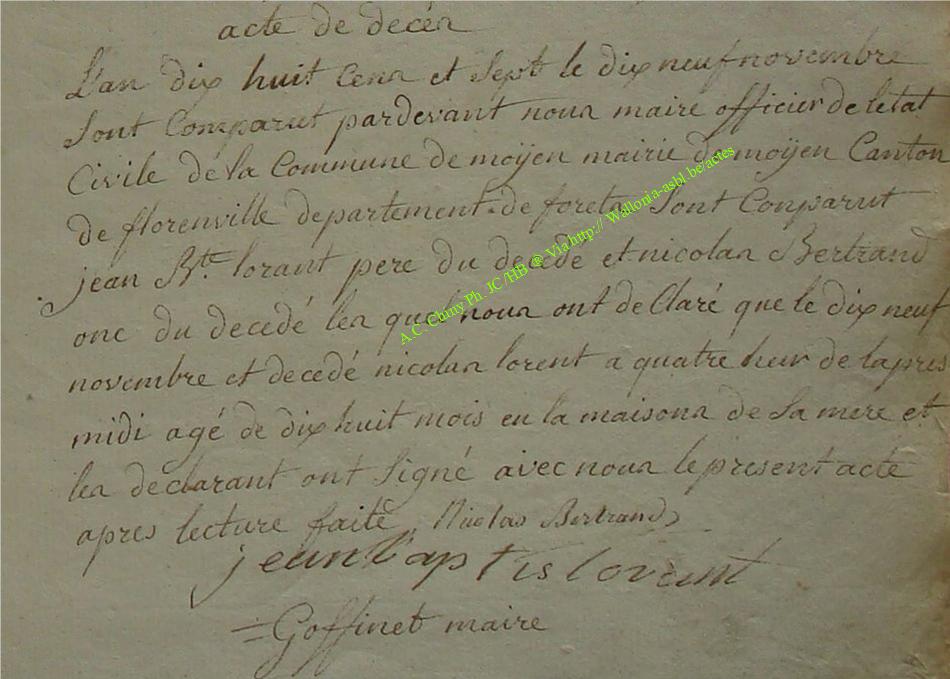 acte de decés
L'an dix huit Cens et Sept le dix neuf novembre
Sont Comparut pardevant nous maire officier de l'état
Civile de la Commune de moÿen mairie de moÿen Canton
de florenville departement de forets Sont Conparut
jean Bte. lorant pere du decede et nicolas Bertrand
onc du decedé les quel nous ont de Claré que le dix neuf
novembre et decedé nicolas lorent a quatre heur de lapres
midi agé de dix huit mois en la maisons de Sa mere et
les declarant ont Signé avec nous le present acte
apres lecture faite, Nicolas Bertrand
jean baptis lorent
= Goffinet maire
A.C. Chiny Ph. JC /HB @ Via http:// Wallonia-asbl.be/actes